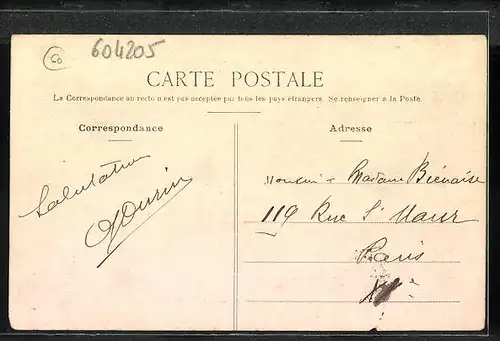 60
604205
CARTE POSTALE
La Correspondance au recto n'est pas acceptée par tous les pays étrangers. Se renseigner à la Poste.
Correspondance
Adresse
Salutations
Monsieur & Madame Biénaise
119 Rue St Maur
Paris